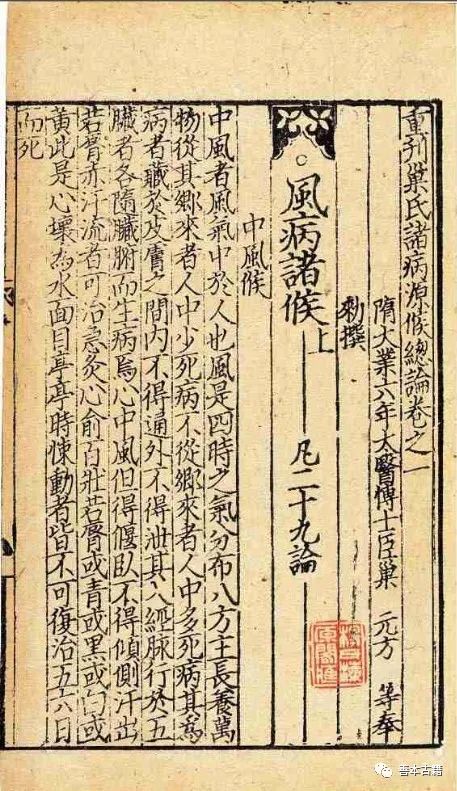 重刊巢氏諸病源候總論卷之一
隋大業六年太醫博士臣巢 元方 等奉
勑撰
風病諸候上 凡二十九論
中風候
中風者風氣中於人也風是四時之氣分布八方主長養萬
物從其鄉來者人中少死病不從鄉來者人中多死病其爲
病者藏於皮膚之間內不得通外不得泄其入經脈行於五
臟者各隨臟腑而生病焉心中風但得偃臥不得傾側汗出
若脣赤汗流者可治急灸心俞百壯若脣或青或黑或白或
黃此是心壞爲水面目亭亭時悚動者皆不可復治五六日
而死
善本古籍